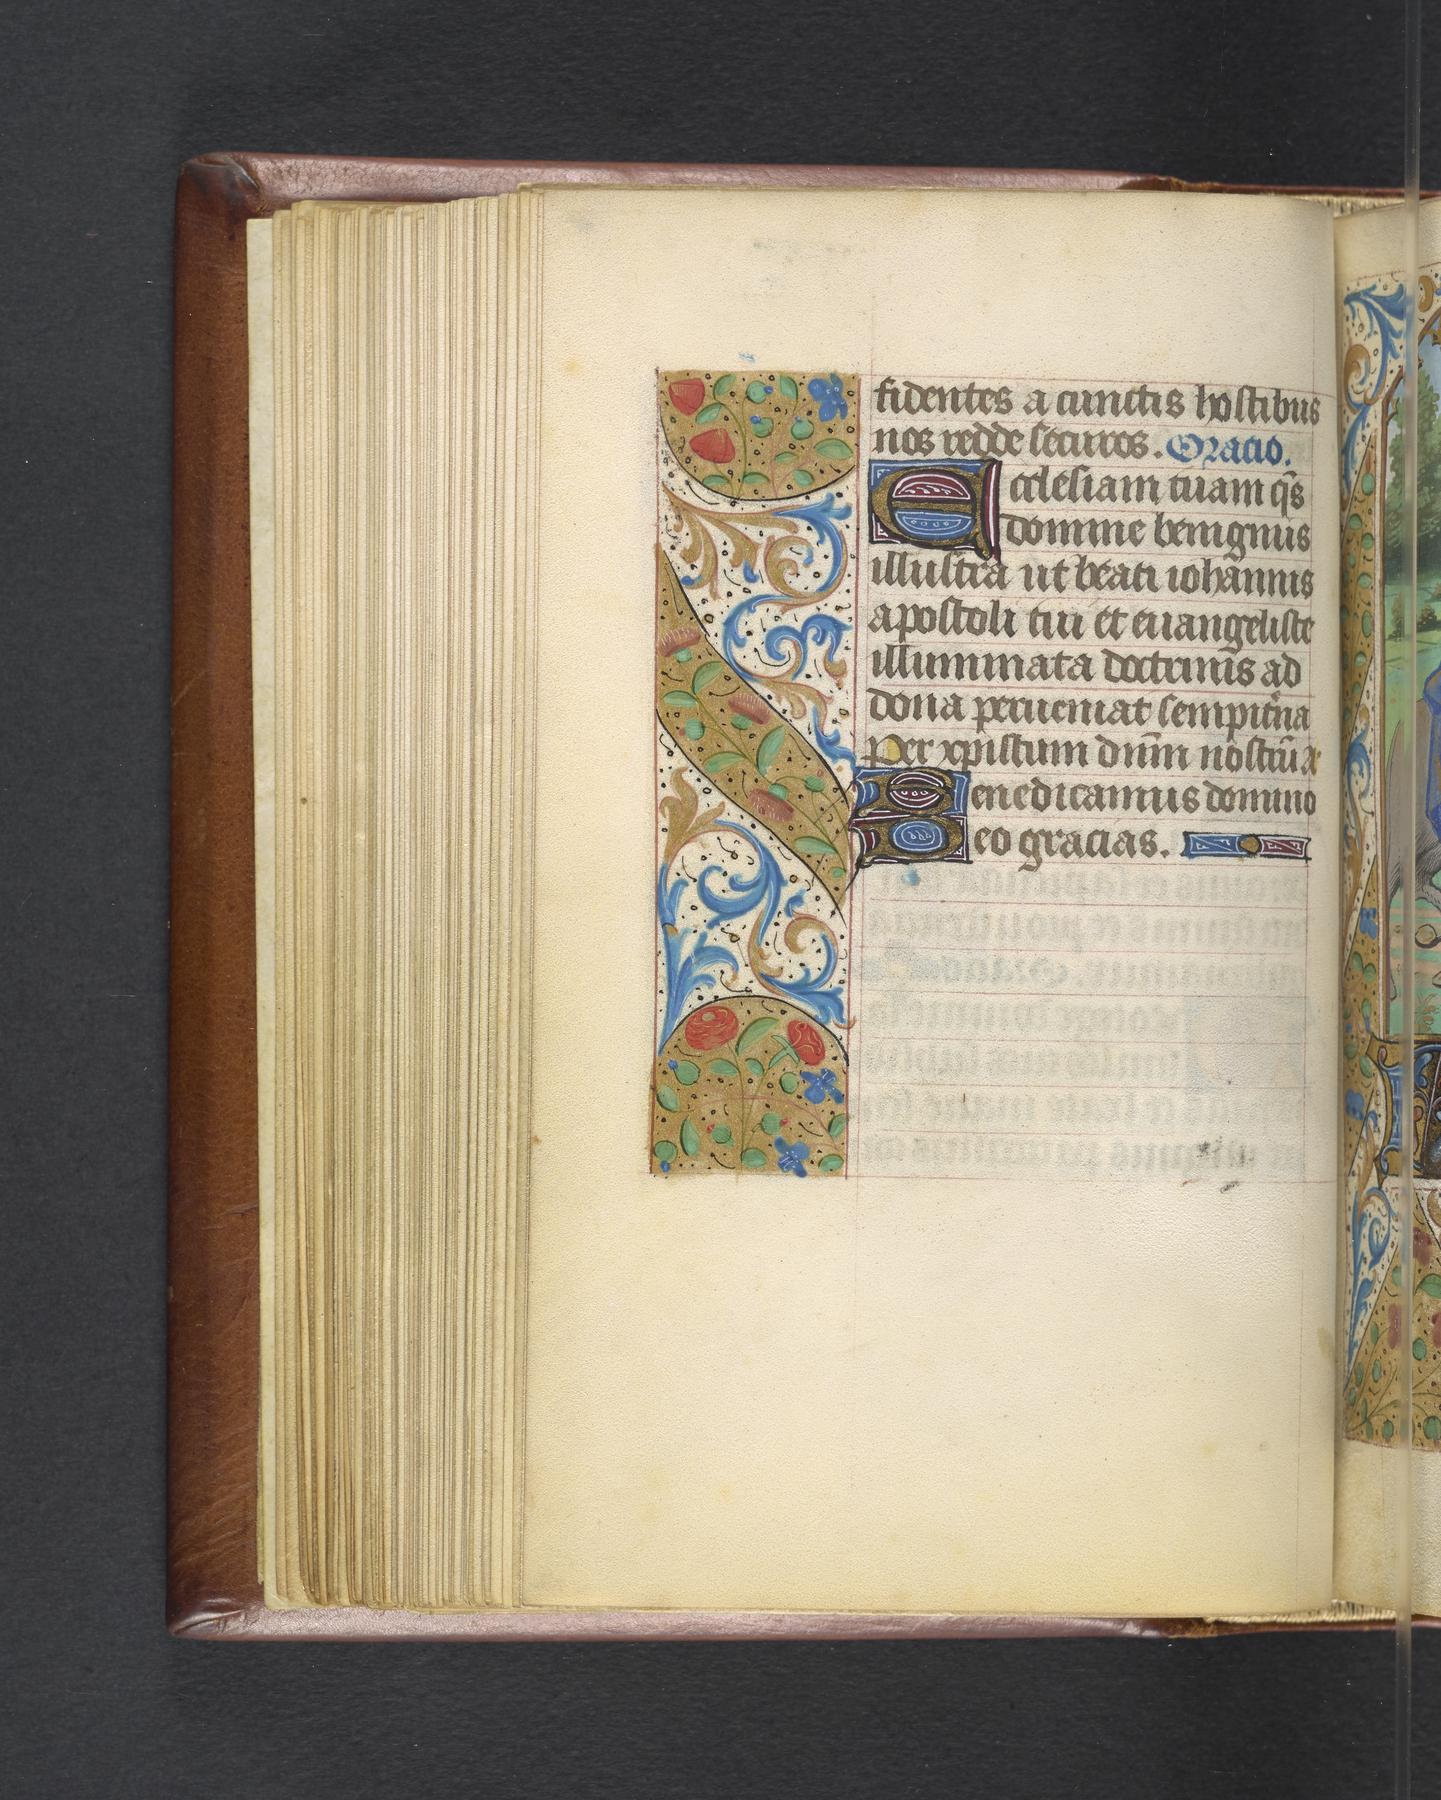 fidentes a cunctis hostibus
nos redde securos. Oracio.
Ecclesiam tuam q̄s
domine benignus
illustra ut beati ioħannis
apostoli tui et euangeliste
illuminata doctrinis ad
dona perueniat sempit̾na
Per xp̄istum dn̄m nostrū a
Benedicamus domino
Deo gracias.